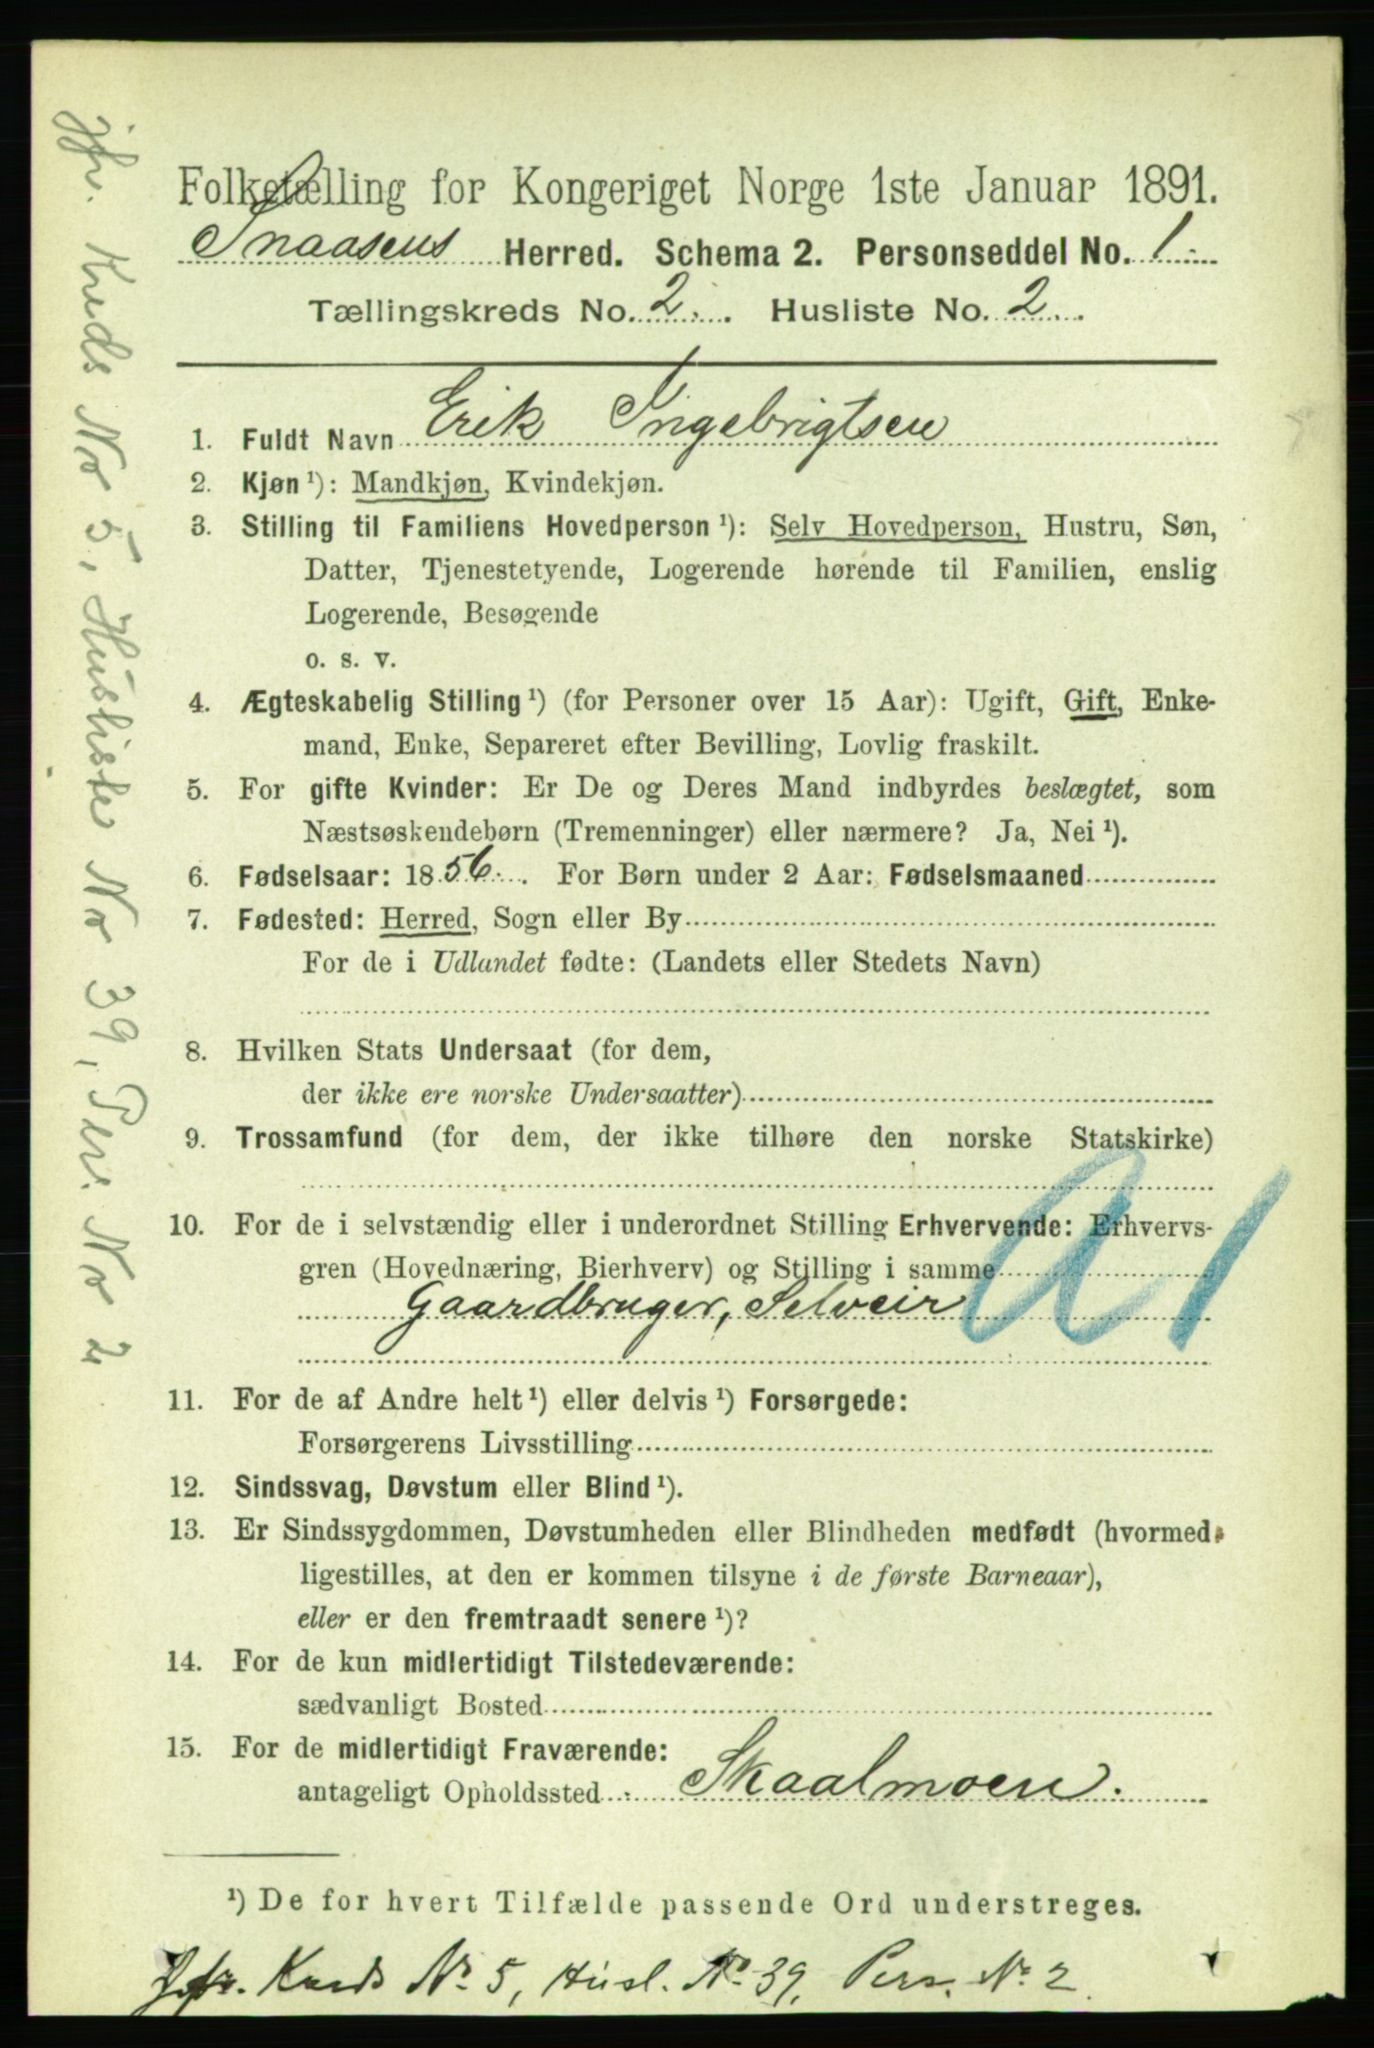 Folketælling for Kongeriget Norge 1ste Januar 1891.
Snaasens Herred. Schema 2. Personseddel No. 1.
Tællingskreds No. 2. Husliste No. 2.
1. Fuldt Navn Erik Ingebrigtsen
2. Kjøn¹): Mandkjøn, Kvindekjøn.
3. Stilling til Familiens Hovedperson¹): Selv Hovedperson, Hustru, Søn,
Datter, Tjenestetyende, Logerende hørende til Familien, enslig
Logerende, Besøgende
o. s. v.
4. Ægteskabelig Stilling¹) (for Personer over 15 Aar): Ugift, Gift, Enke-
mand, Enke, Separeret efter Bevilling, Lovlig fraskilt.
5. For gifte Kvinder: Er De og Deres Mand indbyrdes beslægtet, som
Næstsøskendebørn (Tremenninger) eller nærmere? Ja, Nei¹).
6. Fødselsaar: 1856. For Børn under 2 Aar: Fødselsmaaned
7. Fødested: Herred, Sogn eller By
For de i Udlandet fødte: (Landets eller Stedets Navn)
8. Hvilken Stats Undersaat (for dem,
der ikke ere norske Undersaatter)
9. Trossamfund (for dem, der ikke tilhøre den norske Statskirke)
10. For de i selvstændig eller i underordnet Stilling Erhvervende: Erhvervs-
gren (Hovednæring, Bierhverv) og Stilling i samme
Gaardbruger, Selveir
a1
11. For de af Andre helt¹) eller delvis¹) Forsørgede:
Forsørgerens Livsstilling
12. Sindssvag, Døvstum eller Blind¹).
13. Er Sindssygdommen, Døvstumheden eller Blindheden medfødt (hvormed
ligestilles, at den er kommen tilsyne i de første Barneaar),
eller er den fremtraadt senere¹)?
14. For de kun midlertidigt Tilstedeværende:
sædvanligt Bosted
15. For de midlertidigt Fraværende:
antageligt Opholdssted Skaalmoen.
¹) De for hvert Tilfælde passende Ord understreges.
Jfr. Kreds No. 5, Husl. No. 39, Pers. No. 2.
jfr. Kreds No 5, Husliste No 39, Pers. No 2